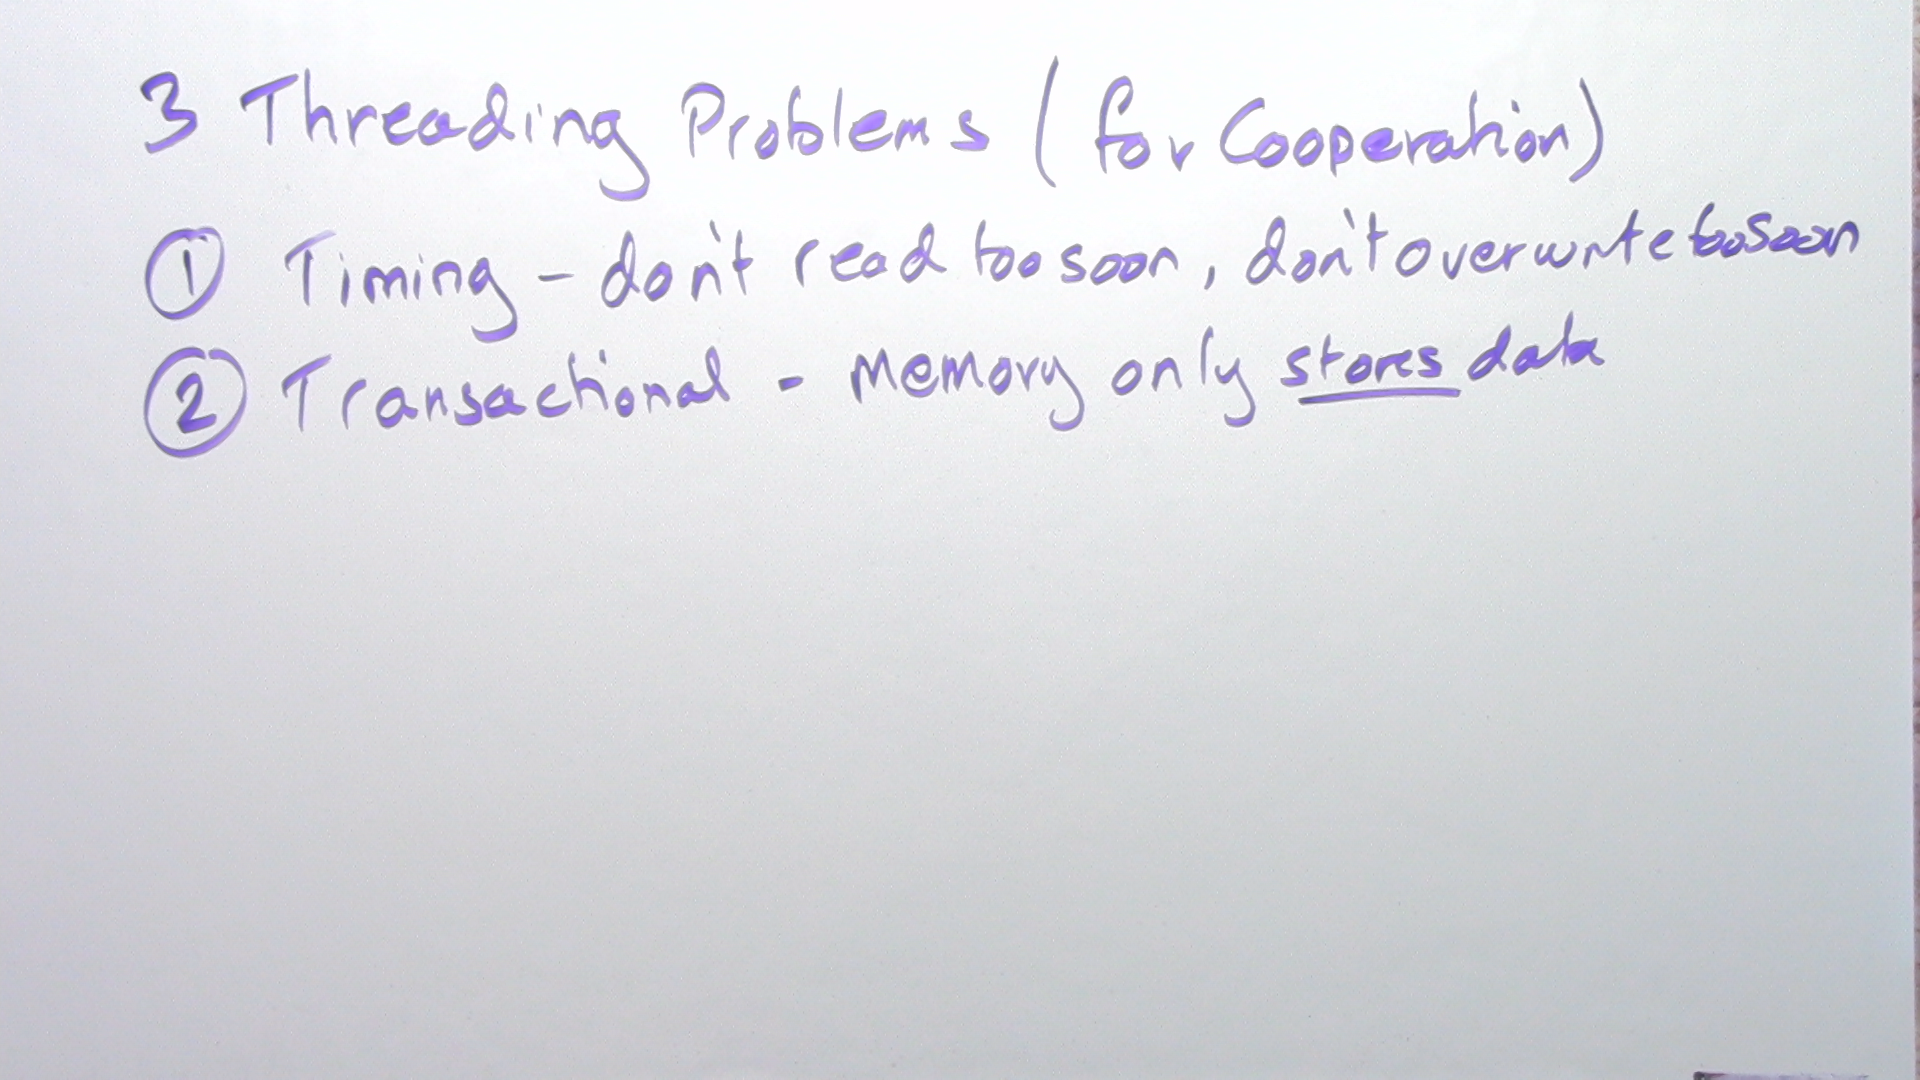 3 Threading Problems (for Cooperation)
① Timing - don't read too soon, don't overwrite too soon
② Transactional - Memory only stores data